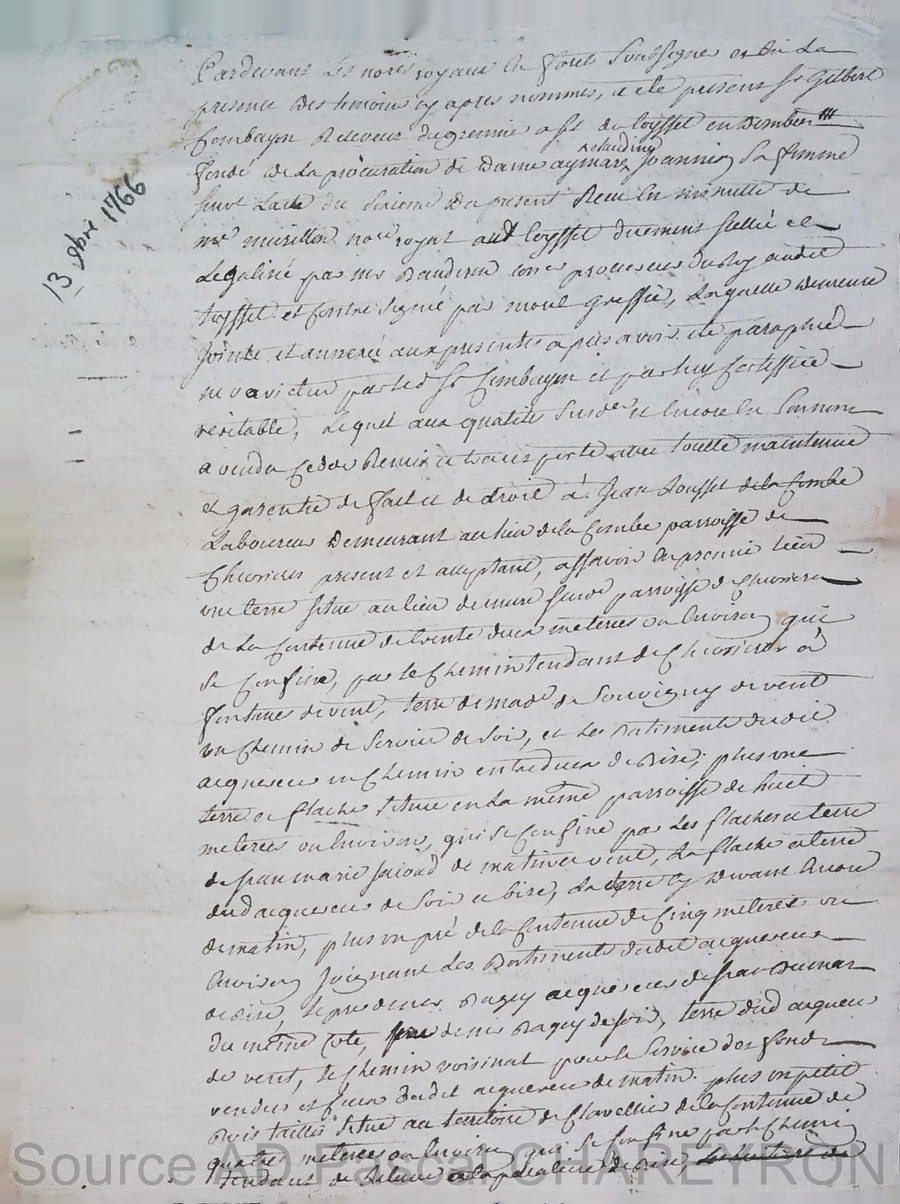 Pardevant les no.res royaux en forets soubsigné et en la
presence des temoins cy apres nommés, a été present Sr Gilbert
Combayon Receveur de grenier a sel de toyssei en Dombes
claudine
fondé de la procuration de dame aymare joannin sa femme
suivt l'acte du sixieme du present Receu en minutte de
me no.re royal audt toyssei duement scellé et
Legalisé par procureur du Roy audit
13 9bre 1766
toyssei et contre signé par greffier, laquelle demeure
jointe et annexée aux presentes apres avoir été paraphée
par led Sr Combayon et par luy certiffiée
veritable, Lequel aux qualités susd.es et encore en son nom
a vendu cedé Remis et transporté avec toutte maintenue
et garentie de fait et de droit à Jean Jousset de la Combe
Laboureur Demeurant au lieu de la Combe parroisse de
Chevrieres present et acceptant, assavoir en premier lieu
une terre situé au lieu de parroisse de Chevrieres
de la Contenue de trente deux meterées ou environ qui
se Confine, par le Chemin tendant de Chevrieres à
fontanes de vent, terre de made de Souvigny de vent
un Chemin de service de soir, et les Batiments dudit
acquereur un Chemin entredeux de Bise; plus une
terre et flache situé en la même parroisse de huit
meterées ou environ, qui se Confine par les flaches et terre
de jean marie de matin et vent, La flache et terre
dud acquereur de soir et bise, La terre cy devant
de matin, plus un pré de la Contenue de Cinq meterées ou
environ joignant les Bastiments dudit acquereur
de Bise, le pré de mr Ragey acquereur de jean
du même coté, de mr Ragey de soir, terre dud acquereur
de vent, le Chemin voisinat pour le service des fonds
vendus et ceux dudit acquereur de matin. plus un petit
Bois taillis situé au territoire de Clavellie de la Contenue de
quatre meterées ou environ qui se Confine par le Chemin
tendant de a la de Bise,
Source AD Pascal CHAREYRON